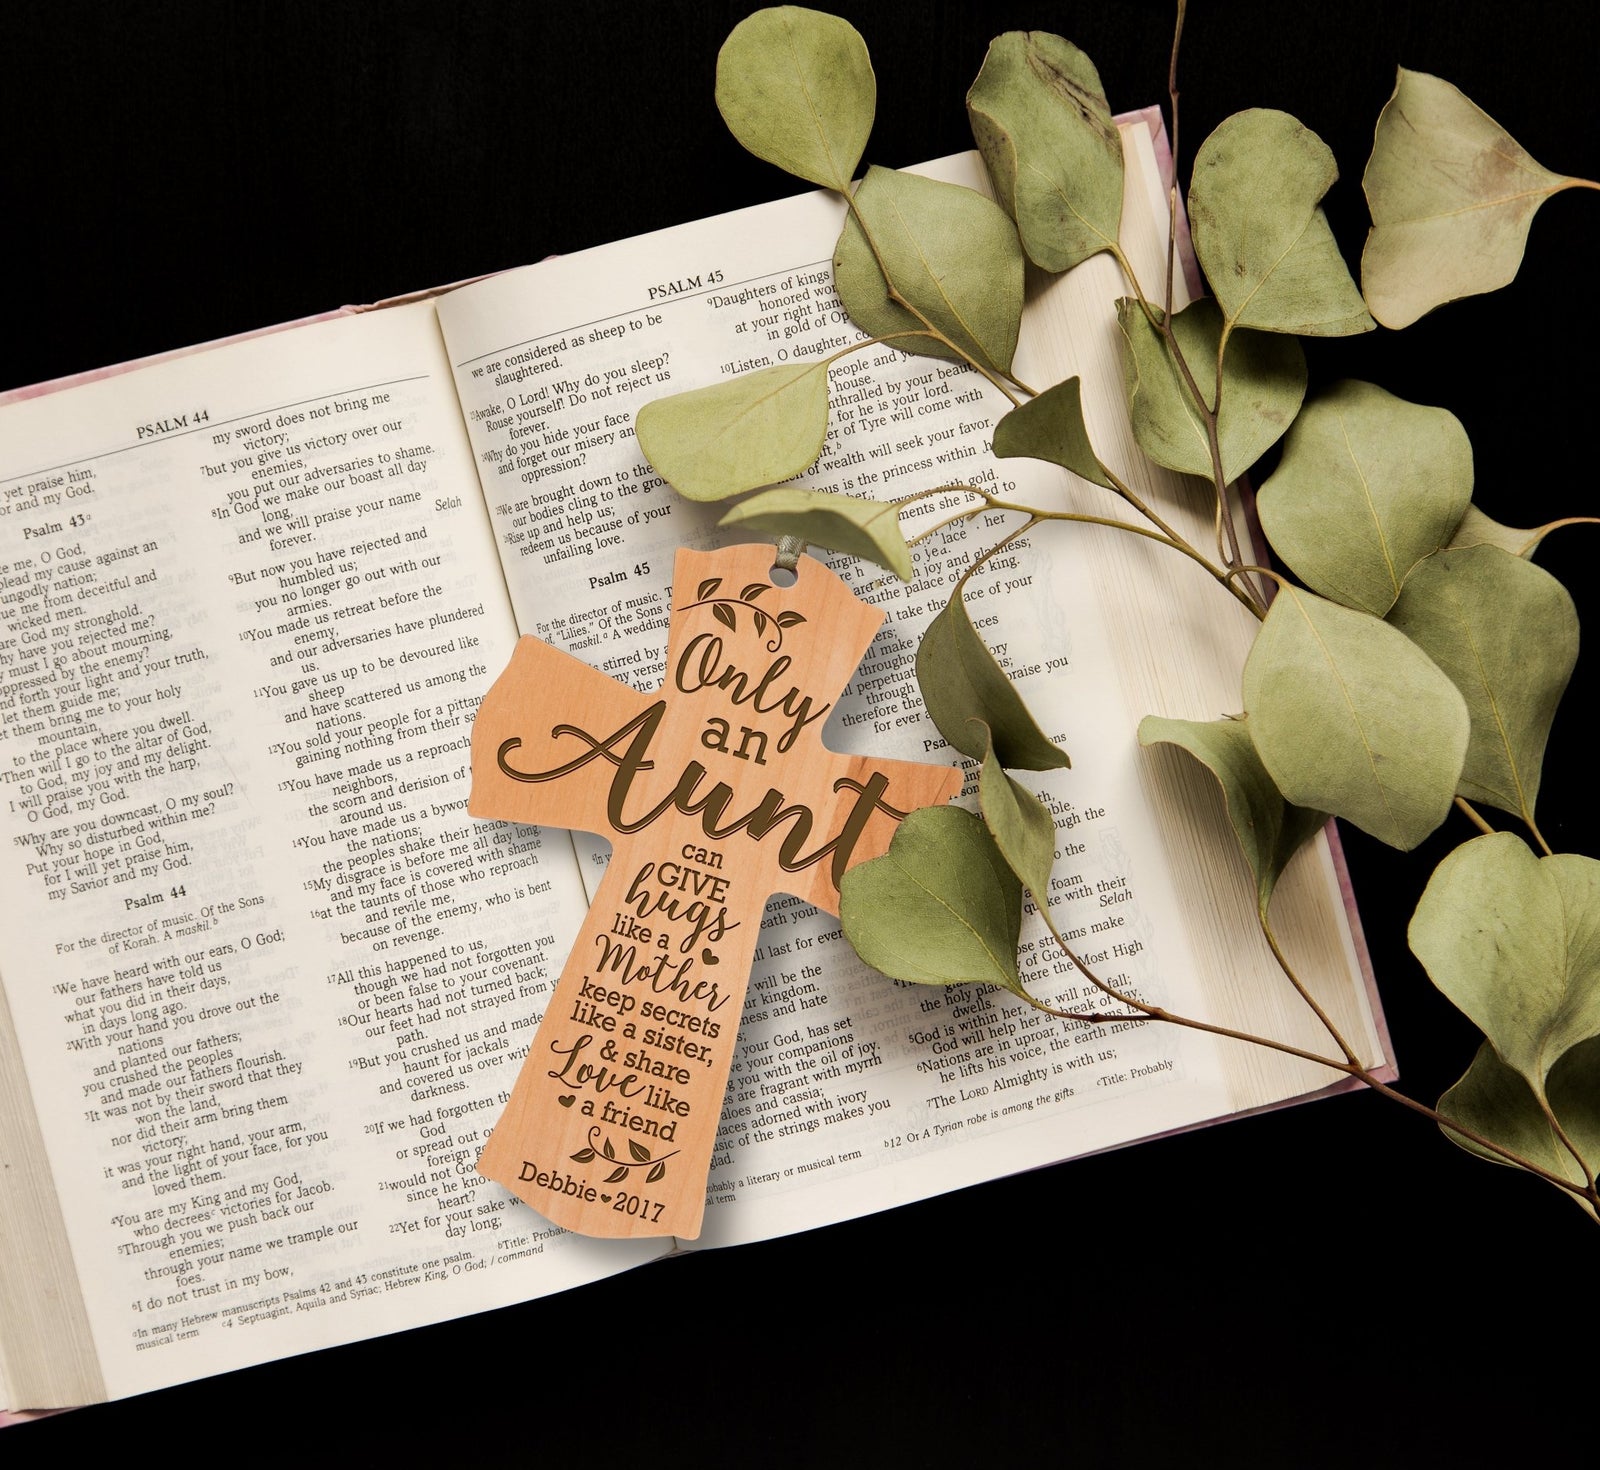 PSALM 44
yet praise him,
or and my God.
Psalm 43a
me, O God,
plead my cause against an
ungodly nation;
me from deceitful and
wicked men.
are God my stronghold.
hy have you rejected me?
must I go about mourning,
oppressed by the enemy?
nd forth your light and your truth,
let them guide me;
et them bring me to your holy
mountain,
to the place where you dwell.
Then will I go to the altar of God,
to God, my joy and my delight.
I will praise you with the harp,
O God, my God.
5Why are you downcast, O my soul?
Why so disturbed within me?
Put your hope in God,
for I will yet praise him,
my Savior and my God.
Psalm 44
For the director of music. Of the Sons
of Korah. A maskil.b
1We have heard with our ears, O God;
our fathers have told us
what you did in their days,
in days long ago.
2With your hand you drove out the
nations
and planted our fathers;
you crushed the peoples
and made our fathers flourish.
3It was not by their sword that they
won the land,
nor did their arm bring them
victory;
it was your right hand, your arm,
and the light of your face, for you
loved them.
4You are my King and my God,
who decreesc victories for Jacob.
5Through you we push back our
enemies;
through your name we trample our
foes.
6I do not trust in my bow,
my sword does not bring me
victory;
7but you give us victory over our
enemies,
you put our adversaries to shame.
8In God we make our boast all day
long,
and we will praise your name
forever. Selah
9But now you have rejected and
humbled us;
you no longer go out with our
armies.
10You made us retreat before the
enemy,
and our adversaries have plundered
us.
11You gave us up to be devoured like
sheep
and have scattered us among the
nations.
12You sold your people for a pittance
gaining nothing from their sa
13You have made us a reproach
neighbors,
the scorn and derision of t
around us.
14You have made us a bywor
the nations;
the peoples shake their heads
15My disgrace is before me all day long,
and my face is covered with shame
16at the taunts of those who reproach
and revile me,
because of the enemy, who is bent
on revenge.
17All this happened to us,
though we had not forgotten you
or been false to your covenant.
18Our hearts had not turned back;
our feet had not strayed from y
path.
19But you crushed us and made
haunt for jackals
and covered us over with
darkness.
20If we had forgotten th
God
or spread out o
foreign go
21would not God
since he kno
heart?
22Yet for your sake w
day long;
aIn many Hebrew manuscripts Psalms 42 and 43 constitute one psalm. bTitle: Probab
musical term c4 Septuagint, Aquila and Syriac; Hebrew King, O God; / command
PSALM 45
we are considered as sheep to be
slaughtered.
23Awake, O Lord! Why do you sleep?
Rouse yourself! Do not reject us
forever.
24Why do you hide your face
and forget our misery an
oppression?
25We are brought down to the
our bodies cling to the gro
26Rise up and help us;
redeem us because of your
unfailing love.
Psalm 45
For the director of music. T
of "Lilies." Of the Sons o
maskil.a A wedding
stirred by a
my verses
9Daughters of kings
honored wo
at your right han
in gold of Op
10Listen, O daughter, co
people and yo
house.
nthralled by your beauty
, for he is your lord.
er of Tyre will come with
ift,b
of wealth will seek your favor.
ious is the princess within
her;
with gold.
she is led to
joy and gladness;
the palace of the king.
take the place of your
throughou
perpetuat
through
therefore the
for ever a
praise you
Only
an
Aunt
can
GIVE
hugs
like a
Mother
keep secrets
like a sister,
& share
Love like
a friend
Debbie 2017
ll last for ever
will be the
kingdom.
ness and hate
your God, has set
your companions
g you with the oil of joy.
are fragrant with myrrh
aloes and cassia;
laces adorned with ivory
sic of the strings makes you
glad.
foam
quake with their
Selah
streams make
of God,
the holy place where the Most High
dwells.
5God is within her, she will not fall;
God will help her at break of day.
6Nations are in uproar, kingdoms fall;
he lifts his voice, the earth melts.
7The LORD Almighty is with us;
robably a literary or musical term b12 Or A Tyrian robe is among the gifts cTitle: Probably